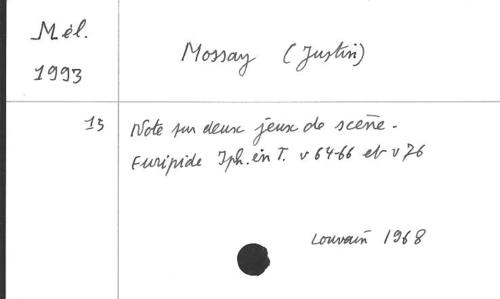 Mél.
1993
Mossay (Justin)
15
Note sur deux jeux de scène.
Euripide Iph. in T. v 64-66 et v 76
Louvain 1968